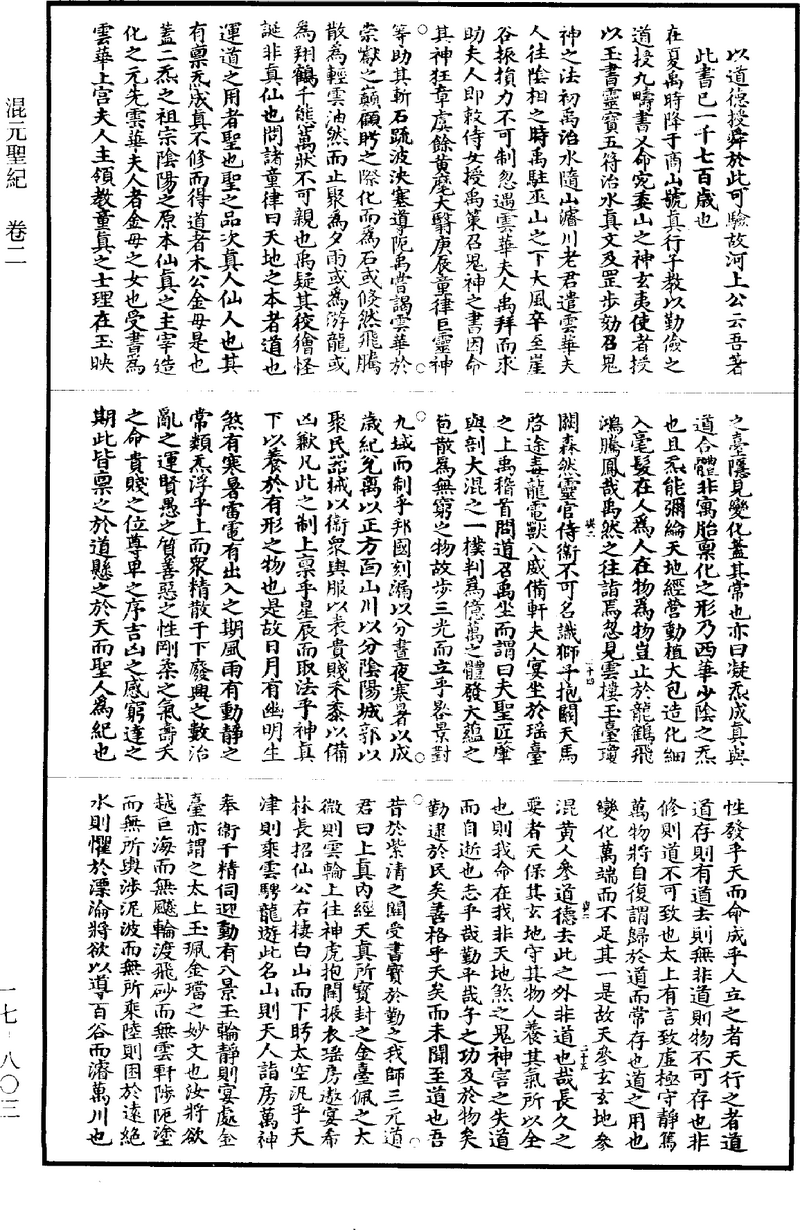 混元聖紀　卷二
一七‐八〇三
以道德授舜於此可驗故河上公云吾著
此書已一千七百歲也
在夏禹時降于商山號真行子教以勤儉之
道授九疇書又命宛委山之神玄夷使者授
以玉書靈寶五符治水真文及罡步劾召鬼
神之法初禹治水隨山濬川老君遣雲華夫
人往陰相之時禹駐巫山之下大風卒至崖
谷振損力不可制忽遇雲華夫人禹拜而求
助夫人即敕侍女授禹策召鬼神之書因命
其神狂章虞餘黃麾大翳庚辰童律巨靈神
等助其斬石疏波決塞導阨禹嘗謁雲華於
崇巘之巔顧盻之際化而為石或倏然飛騰
散為輕雲油然而止聚為夕雨或為游龍或
為翔鶴千態萬狀不可親也禹疑其狡獪怪
誕非真仙也問諸童律曰天地之本者道也
運道之用者聖也聖之品次真人仙人也其
有禀炁成真不修而得道者木公金母是也
蓋二炁之祖宗陰陽之原本仙真之主宰造
化之元先雲華夫人者金母之女也受書為
雲華上宮夫人主領教童真之士理在玉映
之臺隱見變化蓋其常也亦曰凝炁成真與
道合體非寓胎禀化之形乃西華少陰之炁
也且炁能彌綸天地經營動植大包造化細
入毫髮在人為人在物為物豈止於龍鶴飛
鴻騰鳳哉禹然之往詣焉忽見雲樓玉臺瓊
闕森然靈官侍衛不可名識獅子抱關天馬
啓途毒龍電獸八威備軒夫人宴坐於瑤臺
之上禹稽首問道召禹坐而謂曰夫聖匠肇
與剖大混之一樸判為億萬之體發大蘊之
苞散為無窮之物故步三光而立乎晷景對
九域而制乎邦國刻漏以分晝夜寒暑以成
歲紀兌离以正方面山川以分陰陽城郭以
聚民器械以衛眾輿服以表貴賤禾黍以備
凶歉凡此之制上禀乎星辰而取法乎神真
下以養於有形之物也是故日月有幽明生
煞有寒暑雷電有出入之期風雨有動靜之
常類炁浮乎上而眾精散于下廢興之數治
亂之運賢愚之質善惡之性剛柔之氣壽夭
之命貴賤之位尊卑之序吉凶之感窮達之
期此皆禀之於道懸之於天而聖人為紀也
性發乎天而命成乎人立之者天行之者道
道存則有道去則無非道則物不可存也非
修則道不可致也太上有言致虛極守靜篤
萬物將自復謂歸於道而常存也道之用也
變化萬端而不足其一是故天參玄玄地參
混黃人參道德去此之外非道也哉長久之
要者天保其玄地守其物人養其氣所以全
也則我命在我非天地煞之鬼神害之失道
而自逝也志乎哉勤乎哉子之功及於物矣
勤逮於民矣善格乎天矣而未聞至道也吾
昔於紫清之闕受書寶於勤之我師三元道
君曰上真內經天真所寶封之金臺佩之太
微則雲輪上往神虎抱關振衣瑤房遨宴希
林長招仙公右棲白山而下眄太空汎乎天
津則乘雲騁龍遊此名山則天人詣房萬神
奉衛千精伺迎動有八景玉輪靜則宴處金
臺亦謂之太上玉珮金璫之妙文也汝將欲
越巨海而無飈輪渡飛砂而無雲軒陟阨塗
而無所輿涉泥波而無所乘陸則困於遠絕
水則懼於漂淪將欲以導百谷而濬萬川也